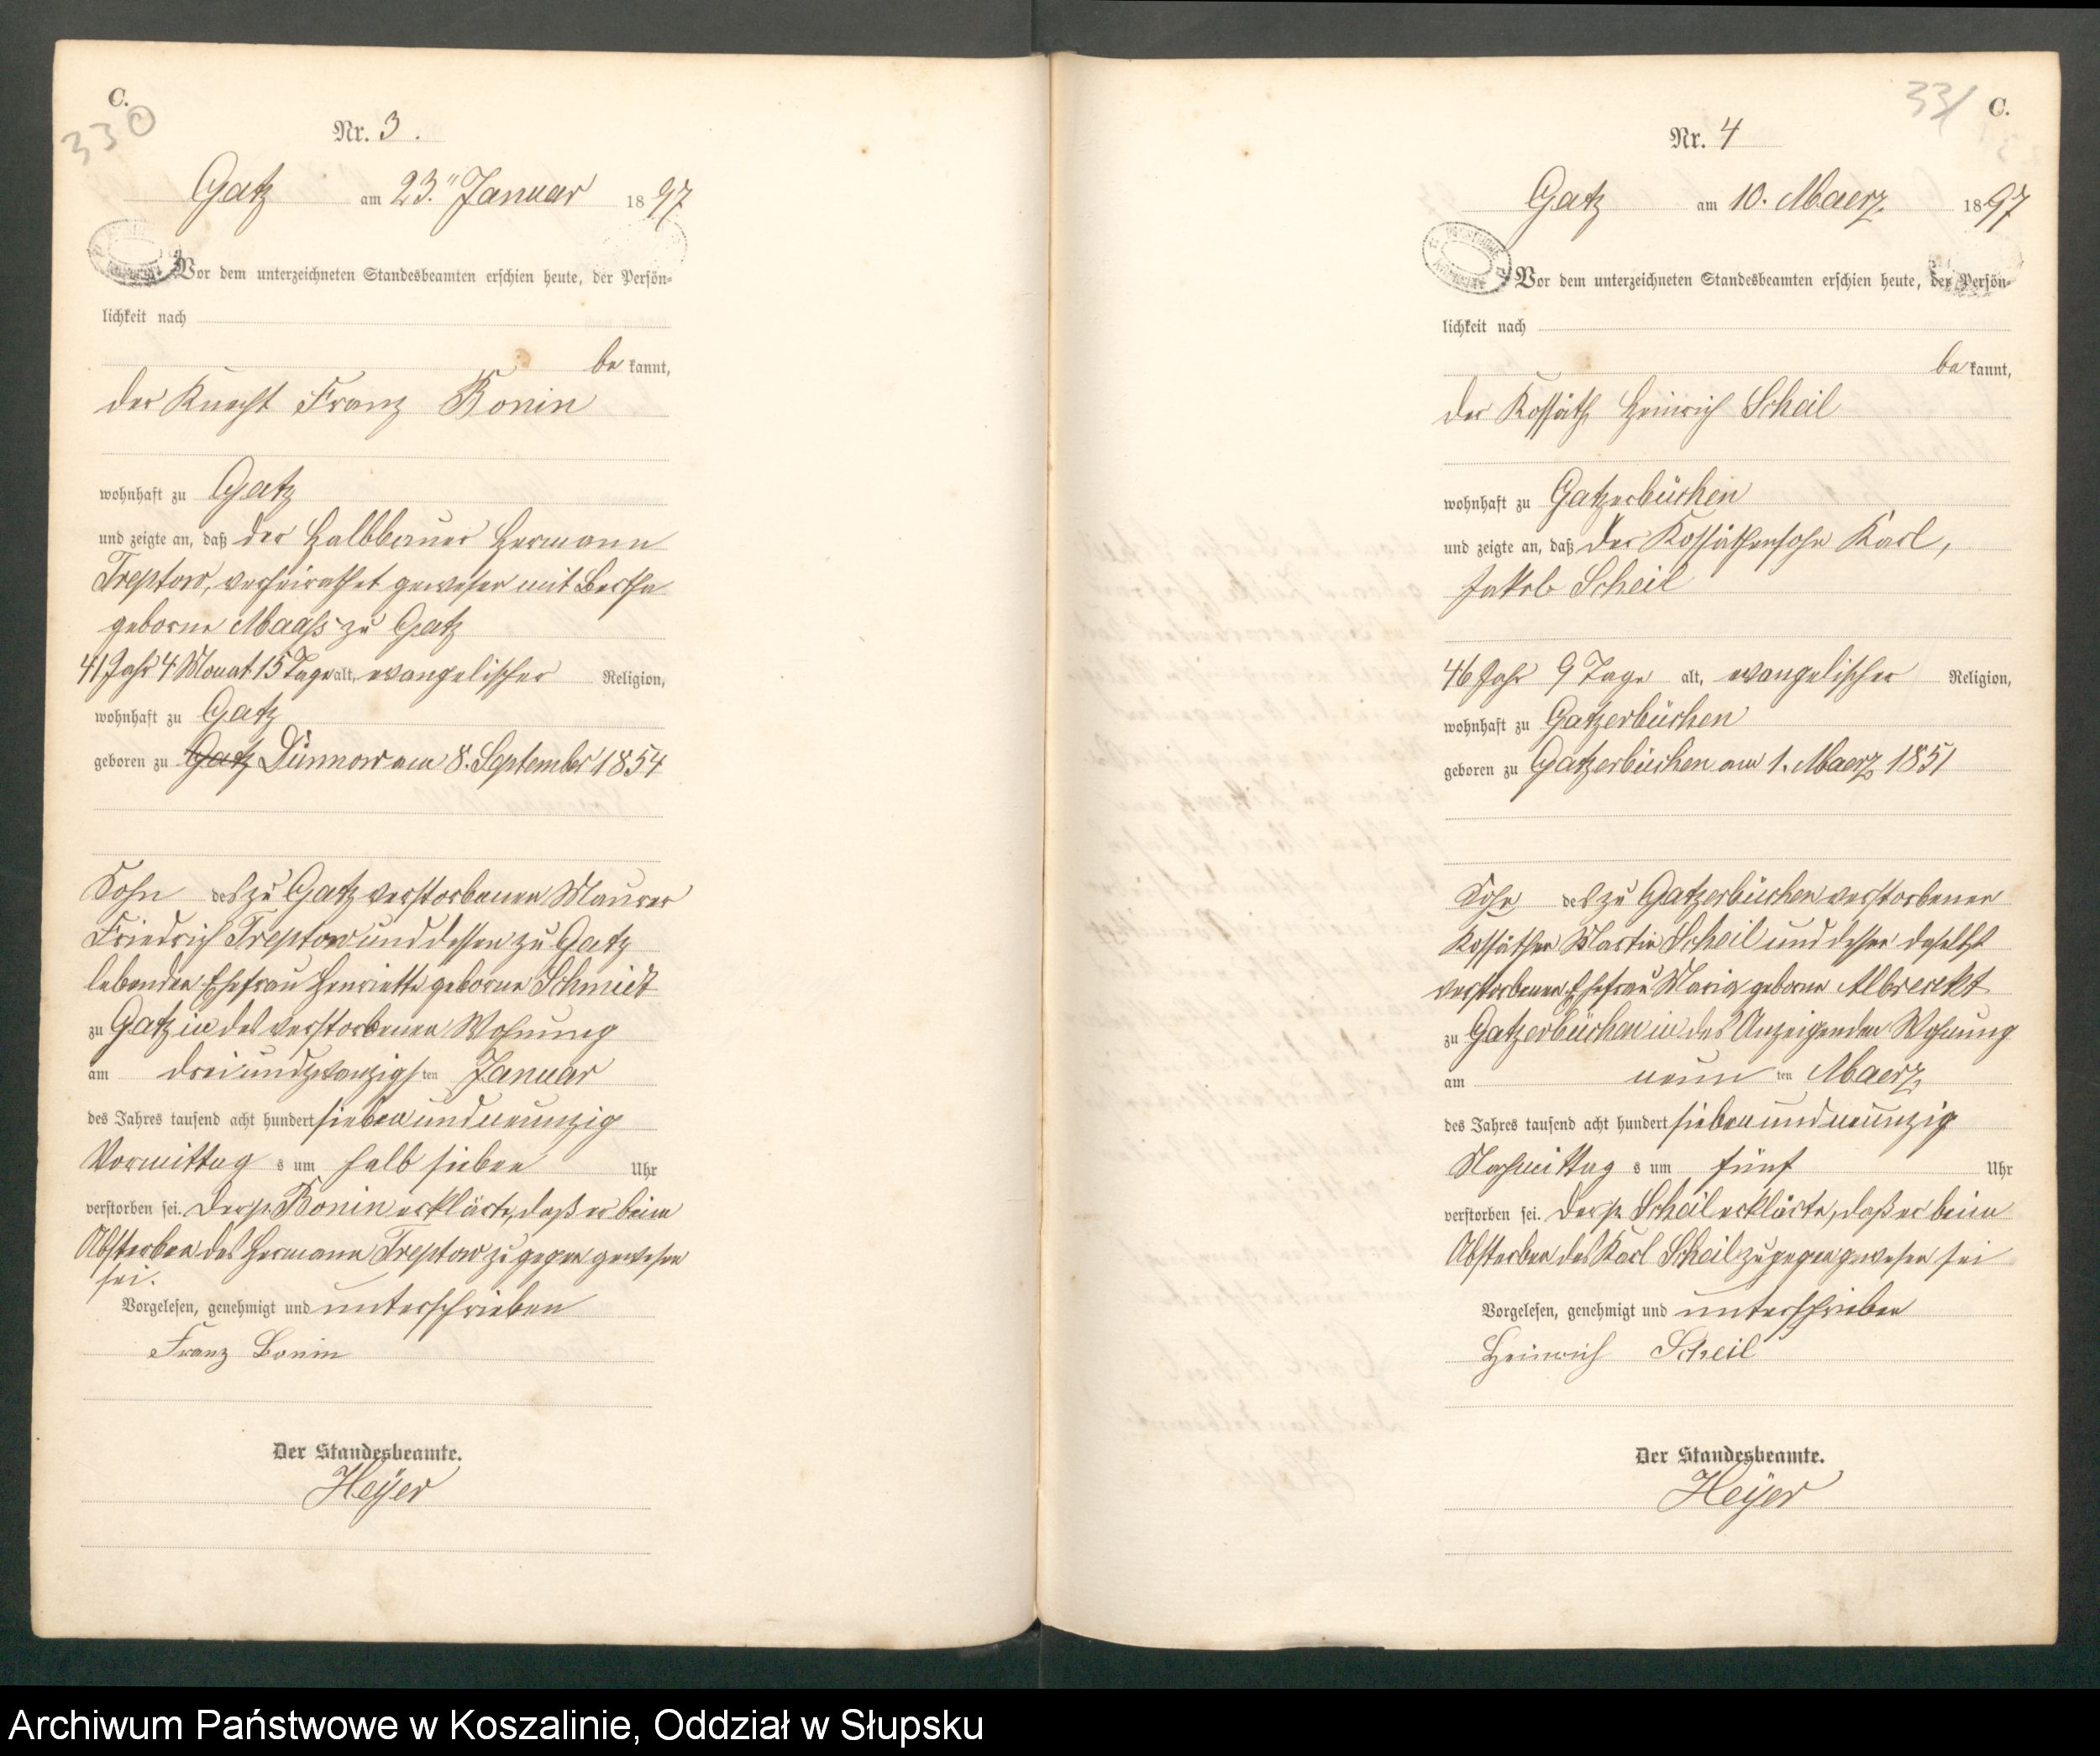 C.
330
Nr. 3.
Gatz am 23." Januar 1897
Vor dem unterzeichneten Standesbeamten erschien heute, der Persön-
lichkeit nach
be kannt,
der Knecht Franz Bonin
wohnhaft zu Gatz
und zeigte an, daß der Halbbauer Hermann
Treptow, verheirathet gewesen mit Bertha
geborne Maaß zu Gatz
41 Jahr 4 Monat 15 Tage alt, evangelischer Religion,
wohnhaft zu Gatz
geboren zu Gatz Dünnow am 8. September 1854
Sohn des zu Gatz verstorbenen Maurer
Friedrich Treptow und dessen zu Gatz
lebenden Ehefrau Henriette geborne Schmidt
zu Gatz in des verstorbenen Wohnung
am dreiundzwanzigsten Januar
des Jahres tausend acht hundert siebenundneunzig
Vormittag s um halb sieben Uhr
verstorben sei. Der p. Bonin erklärte, daß er beim
Absterben des Hermann Treptow zugegen gewesen
sei.
Vorgelesen, genehmigt und unterschrieben
Franz Bonin
Der Standesbeamte.
Heÿer
331
C.
Nr. 4
Gatz am 10. Maerz 1897
Vor dem unterzeichneten Standesbeamten erschien heute, der Persön-
lichkeit nach
be kannt,
der Kossäth Heinrich Scheil
wohnhaft zu Gatzerbüchen
und zeigte an, daß der Kossäthensohn Karl,
Jakob Scheil
46 Jahr 9 Tage alt, evangelischer Religion,
wohnhaft zu Gatzerbüchen
geboren zu Gatzerbüchen am 1. Maerz 1851
Sohn des zu Gatzerbüchen verstorbenen
Kossäthen Martin Scheil und dessen daselbst
verstorbenen Ehefrau Maria geborne Albrecht
zu Gatzerbüchen in des Anzeigenden Wohnung
am neun ten Maerz
des Jahres tausend acht hundert siebenundneunzig
Nachmittag s um fünf Uhr
verstorben sei. Der p. Scheil erklärte, daß er beim
Absterben des Karl Scheil zugegen gewesen sei
Vorgelesen, genehmigt und unterschrieben
Heinrich Scheil
Der Standesbeamte.
Heÿer
Archiwum Państwowe w Koszalinie, Oddział w Słupsku